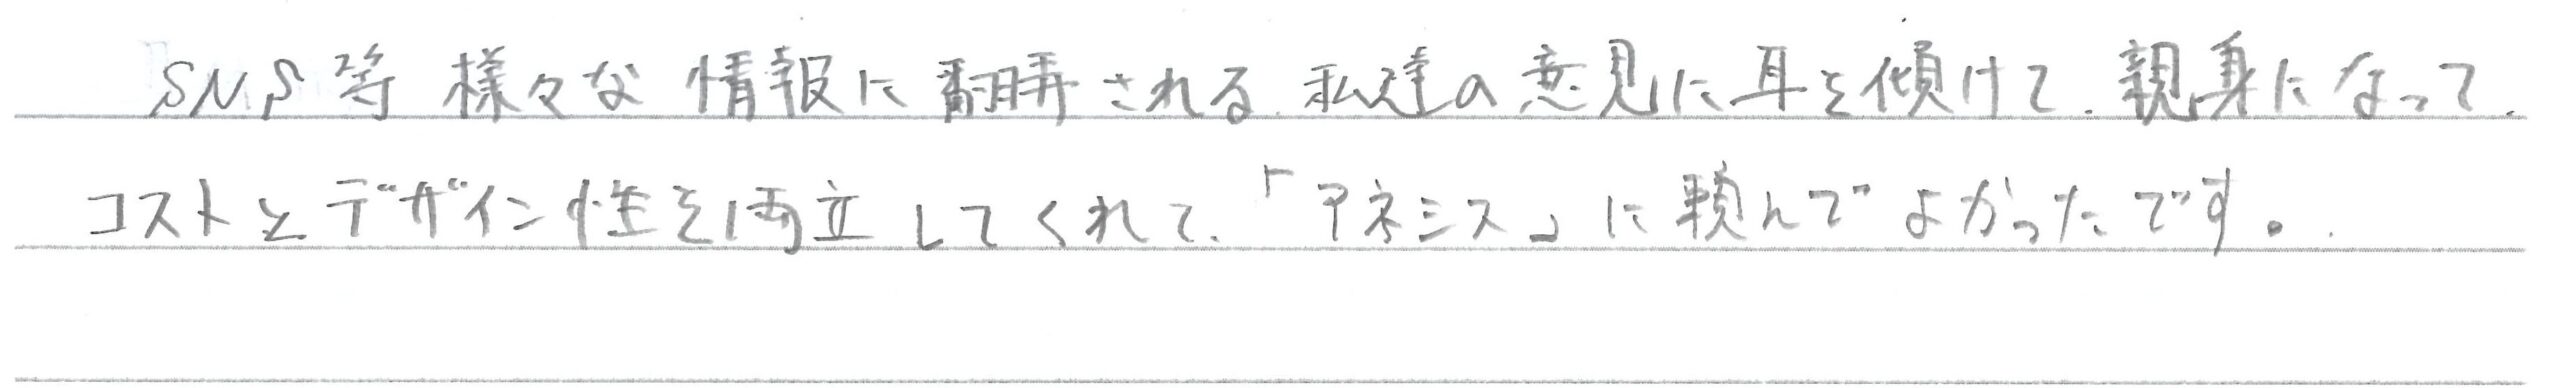 SNS等様々な情報に翻弄される、私達の意見に耳を傾けて、親身になって、
コストとデザイン性を両立してくれて、「アネシス」に頼んでよかったです。